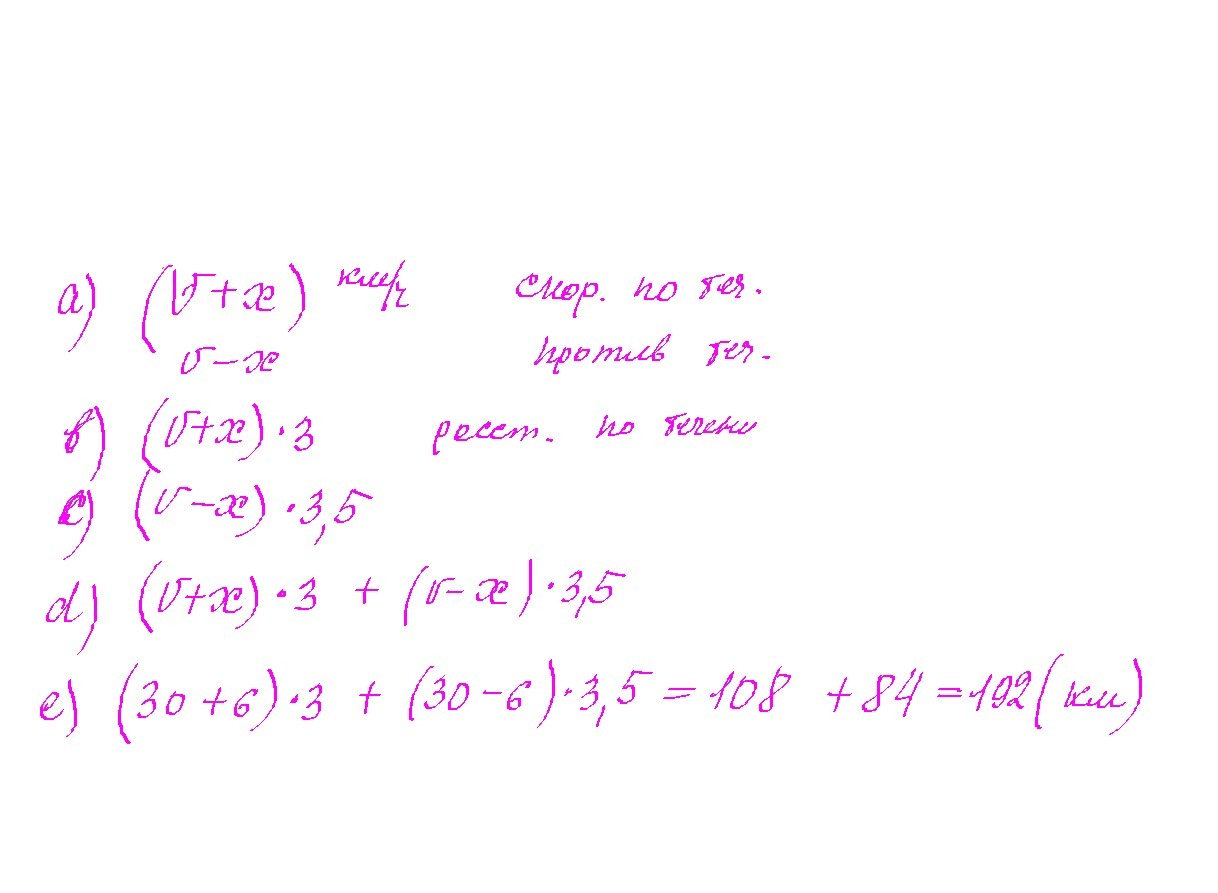 a) (v+x) км/ч скор. по теч.
v-x против теч.
в) (v+x)·3 расст. по течени
c) (v-x)·3,5
d) (v+x)·3 + (v-x)·3,5
e) (30+6)·3 + (30-6)·3,5=108 +84=192(км)